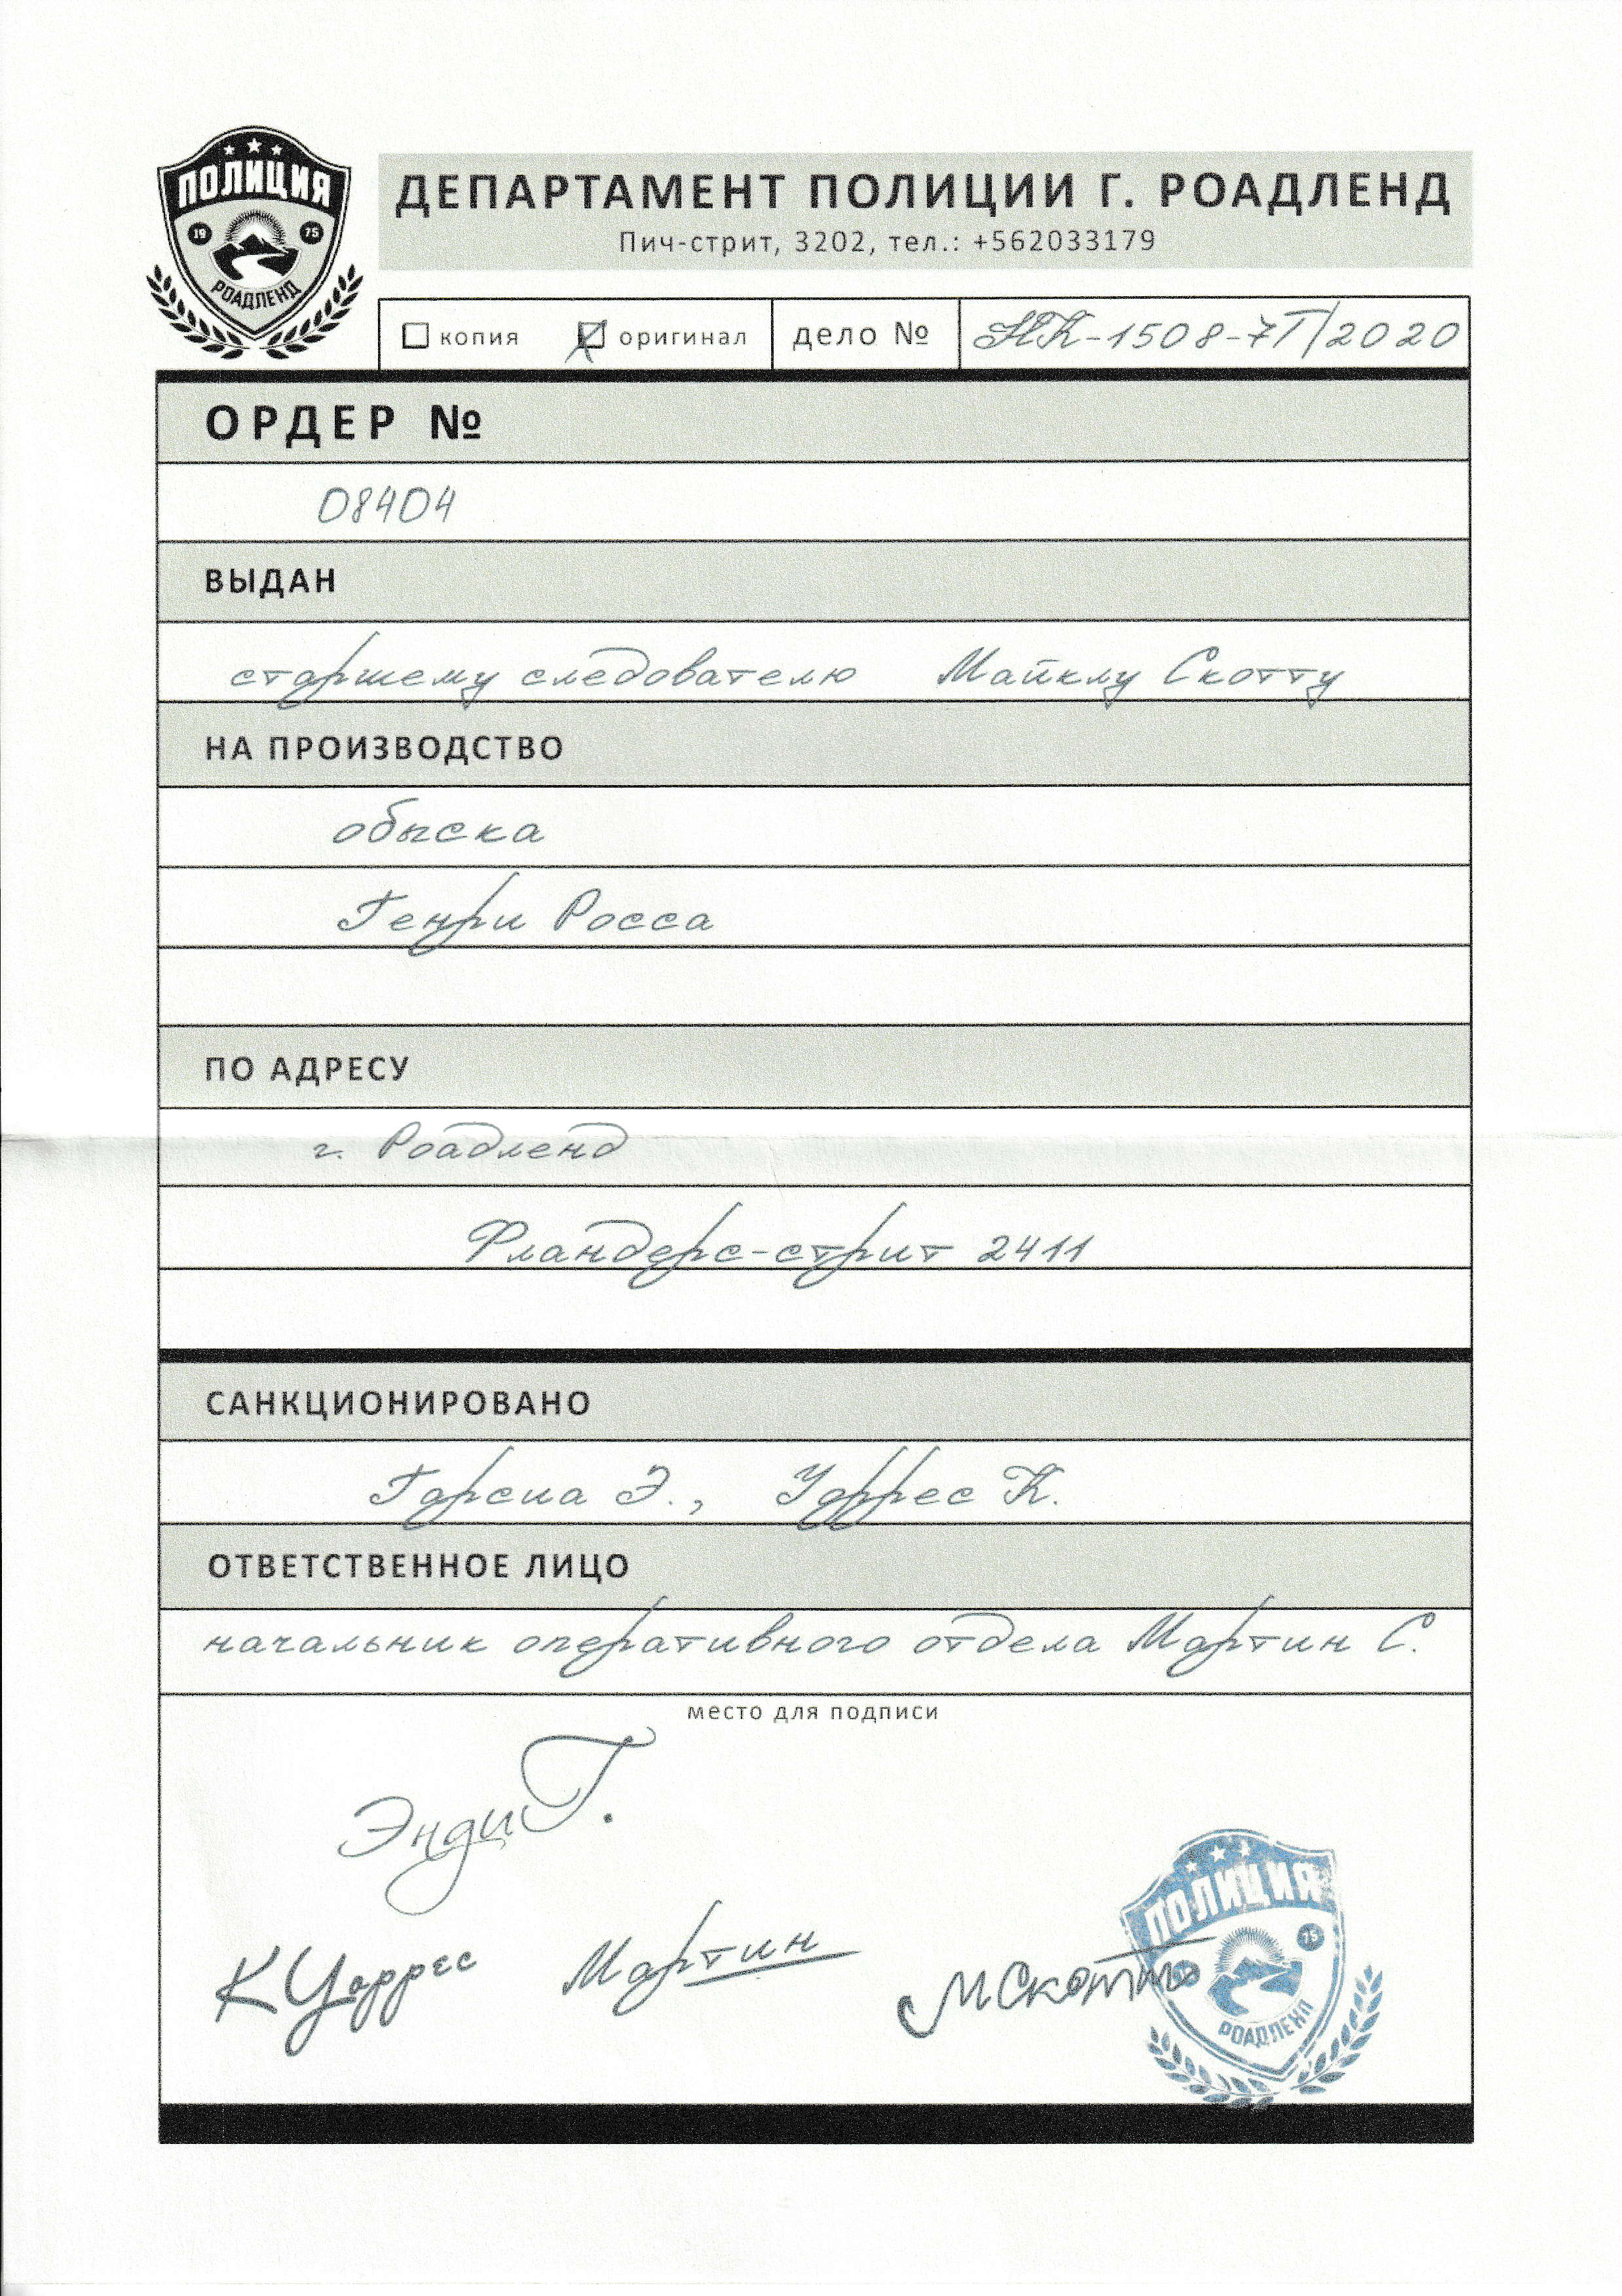 ПОЛИЦИЯ
19 75
РОАДЛЕНД
ДЕПАРТАМЕНТ ПОЛИЦИИ Г. РОАДЛЕНД
Пич-стрит, 3202, тел.: +562033179
копия оригинал дело № НК-1508-7Т/2020
ОРДЕР №
08404
ВЫДАН
старшему следователю Майклу Скотту
НА ПРОИЗВОДСТВО
обыска
Генри Росса
ПО АДРЕСУ
г. Роадленд
Фландерс-стрит 2411
САНКЦИОНИРОВАНО
Гарсиа Э., Уоррес К.
ОТВЕТСТВЕННОЕ ЛИЦО
начальник оперативного отдела Мартин С.
место для подписи
Энди Г.
К Уоррес Мартин М Скотт
ПОЛИЦИЯ
75
РОАДЛЕНД